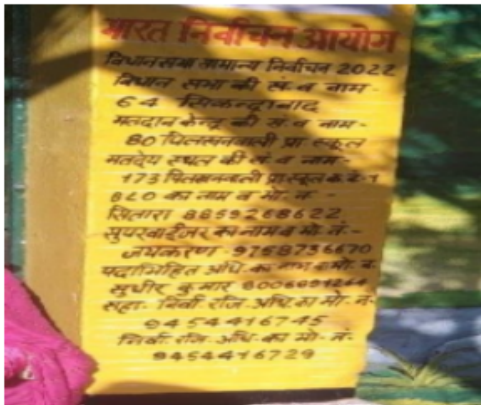 भारत निर्वाचन आयोग
विधानसभा सामान्य निर्वाचन 2022
विधान सभा की सं. व नाम -
64 सिकन्द्राबाद
मतदान केन्द्र की सं. व नाम -
80 पिलखनवाली प्रा. स्कूल
मतदेय स्थल की सं. व नाम -
173 पिलखनवाली प्रा. स्कूल क. नं. 1
BLO का नाम व मो. नं. -
सितारा 8859268622
सुपरवाईजर का नाम व मो. नं. -
जयकरण - 9758736670
पदाभिहित अधि. का नाम व मो. नं.
सुधीर कुमार
सहा. निर्वा. रजि. अधि. का मो. नं.
9454416745
निर्वा. रजि. अधि. का मो. नं. -
9454416729